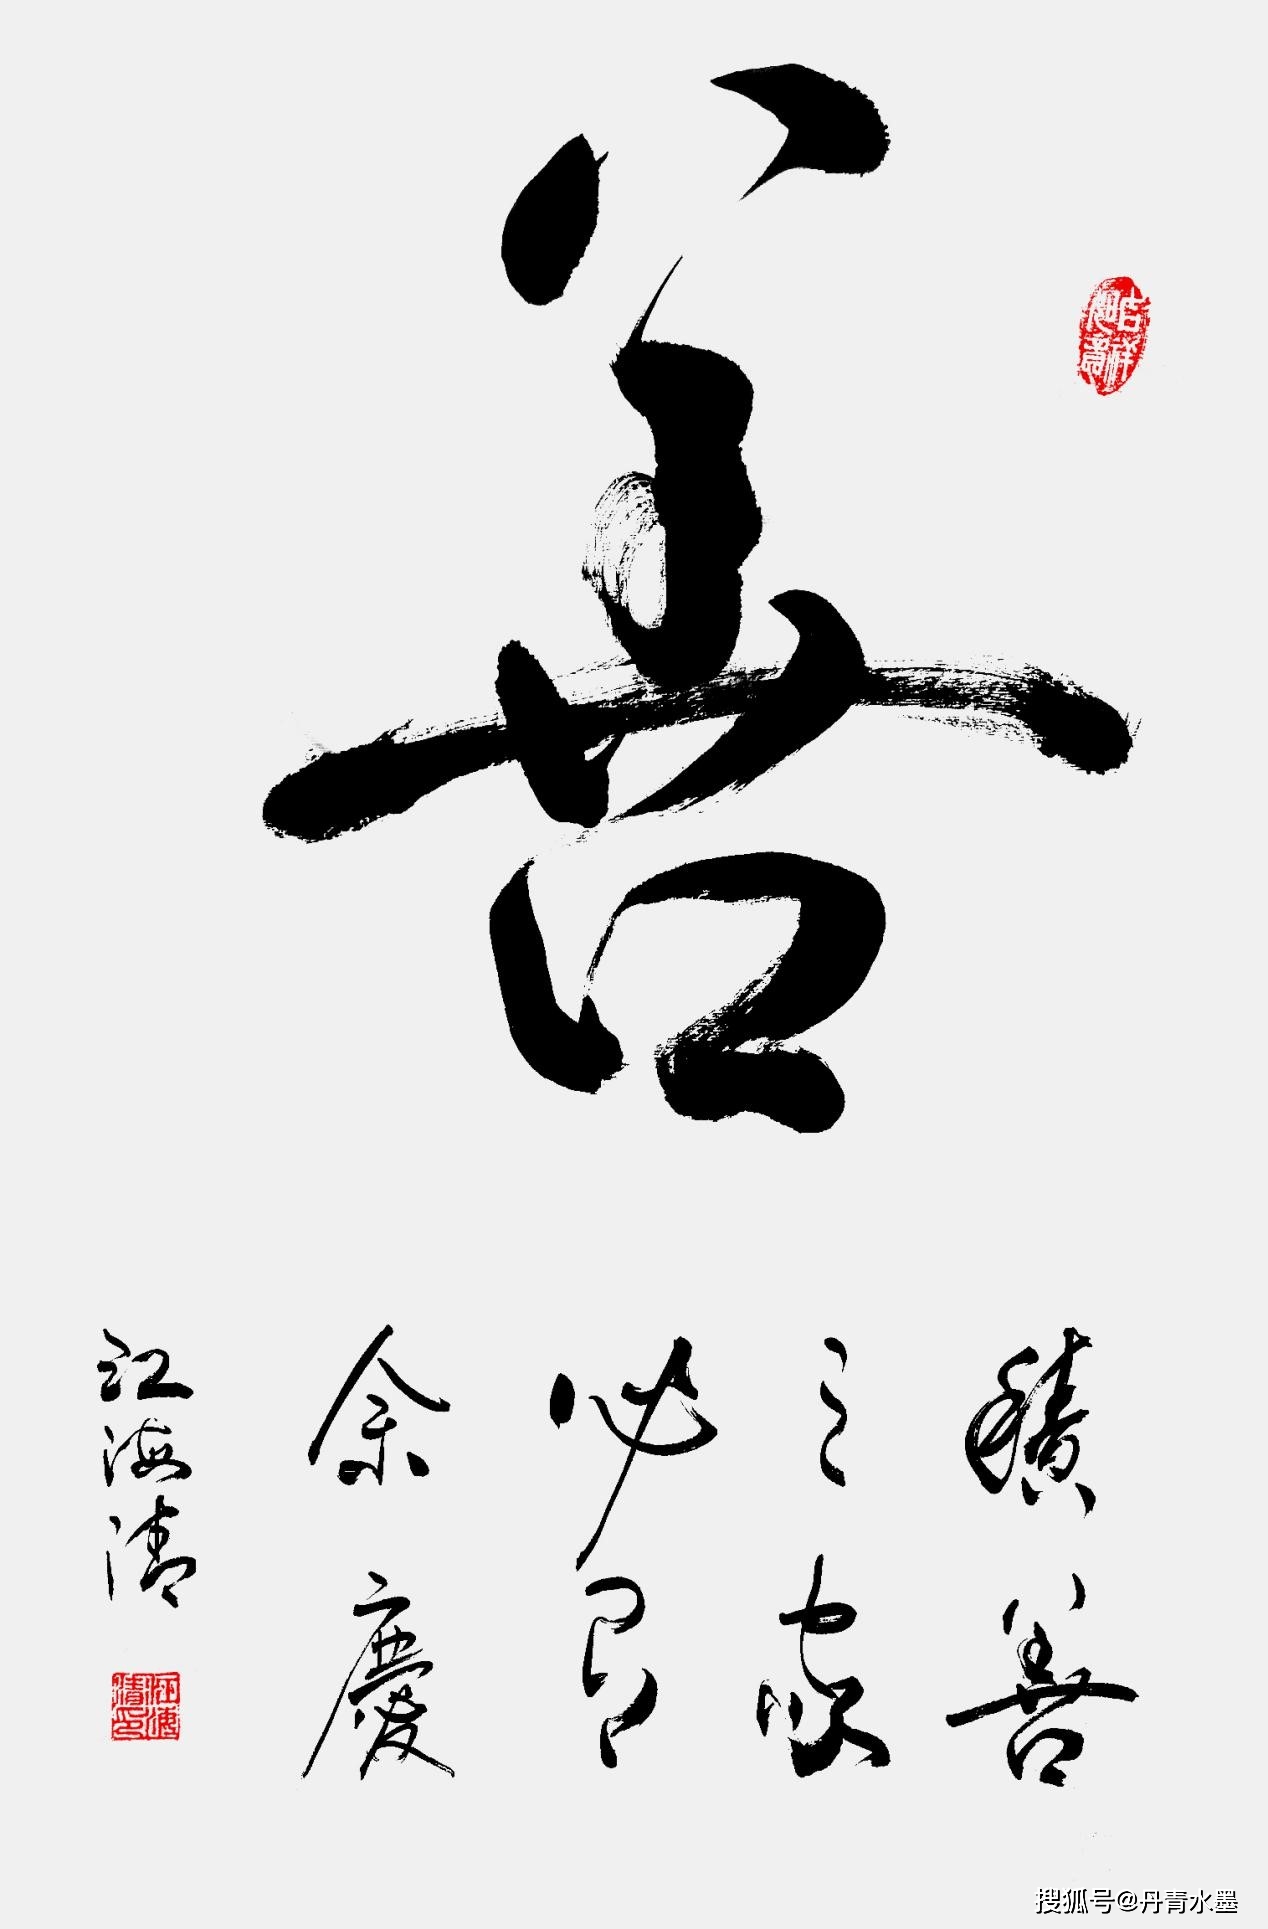 善
吉祥如意
積善
之家
必有
余慶
江海清
江海清印
搜狐号@丹青水墨